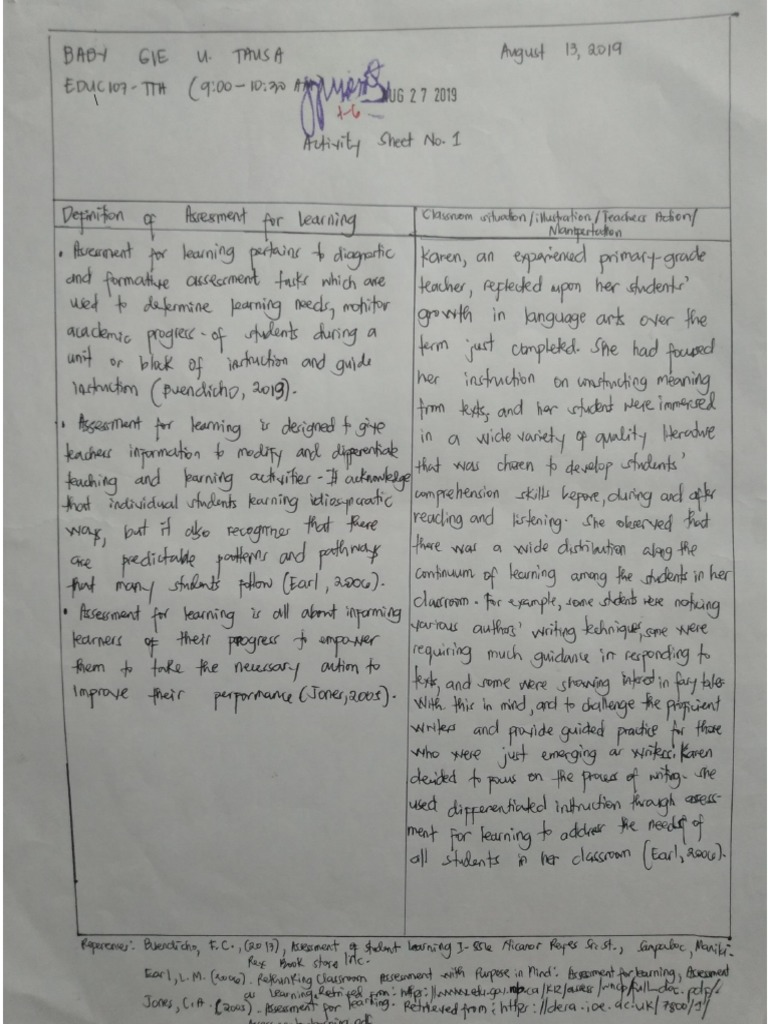 BABY GIE U. TAUSA
August 13, 2019
EDUC 107 - TTH (9:00 - 10:30 AM)
AUG 27 2019
Activity Sheet No. 1
Definition of Assessment for Learning
• Assessment for learning pertains to diagnostic
and formative assessment tasks which are
used to determine learning needs, monitor
academic progress - of students during a
unit or block of instruction and guide
instruction (Buendicho, 2019).
• Assessment for learning is designed to give
teachers information to modify and differentiate
teaching and learning activities - It acknowledge
that individual students learning idiosyncratic
ways, but it also recognizes that there
are predictable patterns and pathways
that many students follow (Earl, 2006).
• Assessment for learning is all about informing
learners of their progress to empower
them to take the necessary action to
improve their performance (Jones, 2005).
Classroom situation/illustration/Teachers Action/
Manipertation
Karen, an experienced primary-grade
teacher, reflected upon her students'
growth in language arts over the
term just completed. She had focused
her instruction on constructing meaning
from texts, and her student were immersed
in a wide variety of quality literature
that was chosen to develop students'
comprehension skills before, during and after
reading and listening. She observed that
there was a wide distribution along the
continuum of learning among the students in her
classroom. For example, some students were noticing
various authors' writing techniques, some were
requiring much guidance in responding to
texts, and some were showing interest in fairy tales.
With this in mind, and to challenge the proficient
writers and provide guided practice for those
who were just emerging as writers, Karen
decided to focus on the process of writing. She
used differentiated instruction through assess-
ment for learning to address the needs of
all students in her classroom (Earl, 2006).
References: Buendicho, F.C., (2013), Assessment of student Learning 1- 856 Nicanor Reyes Sr. st., Sampaloc, Manila:
Rex Book store Inc.
Earl, L.M. (2006). Rethinking Classroom Assessment with Purpose in Mind: Assessment for learning, Assessment
as Learning. Retrieved from: https://www.edu.gov.mb.ca/k12/assess/wncp/full_doc.pdf/.
Jones, C.A. (2005). Assessment for learning. Retrieved from: https://dera.ioe.ac.uk/7800/1/